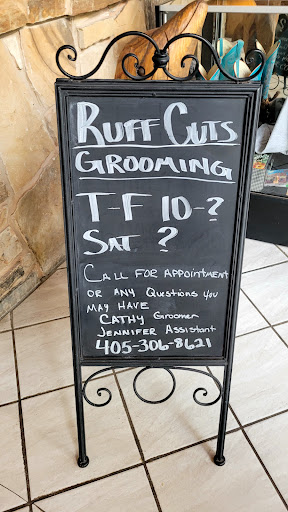 RUFF CUTS
GROOMING
T-F 10-?
SAT. ?
CALL FOR APPOINTMENT
OR ANY QUESTIONS YOU
MAY HAVE
CATHY Groomer
JENNIFER Assistant
405-306-8621